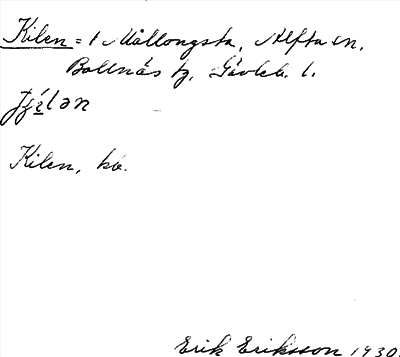 Kilen = i Mållongsta, Alfta sn,
Bollnäs tg, Gävleb. l.
Kilen, kb.
Erik Eriksson 1930.